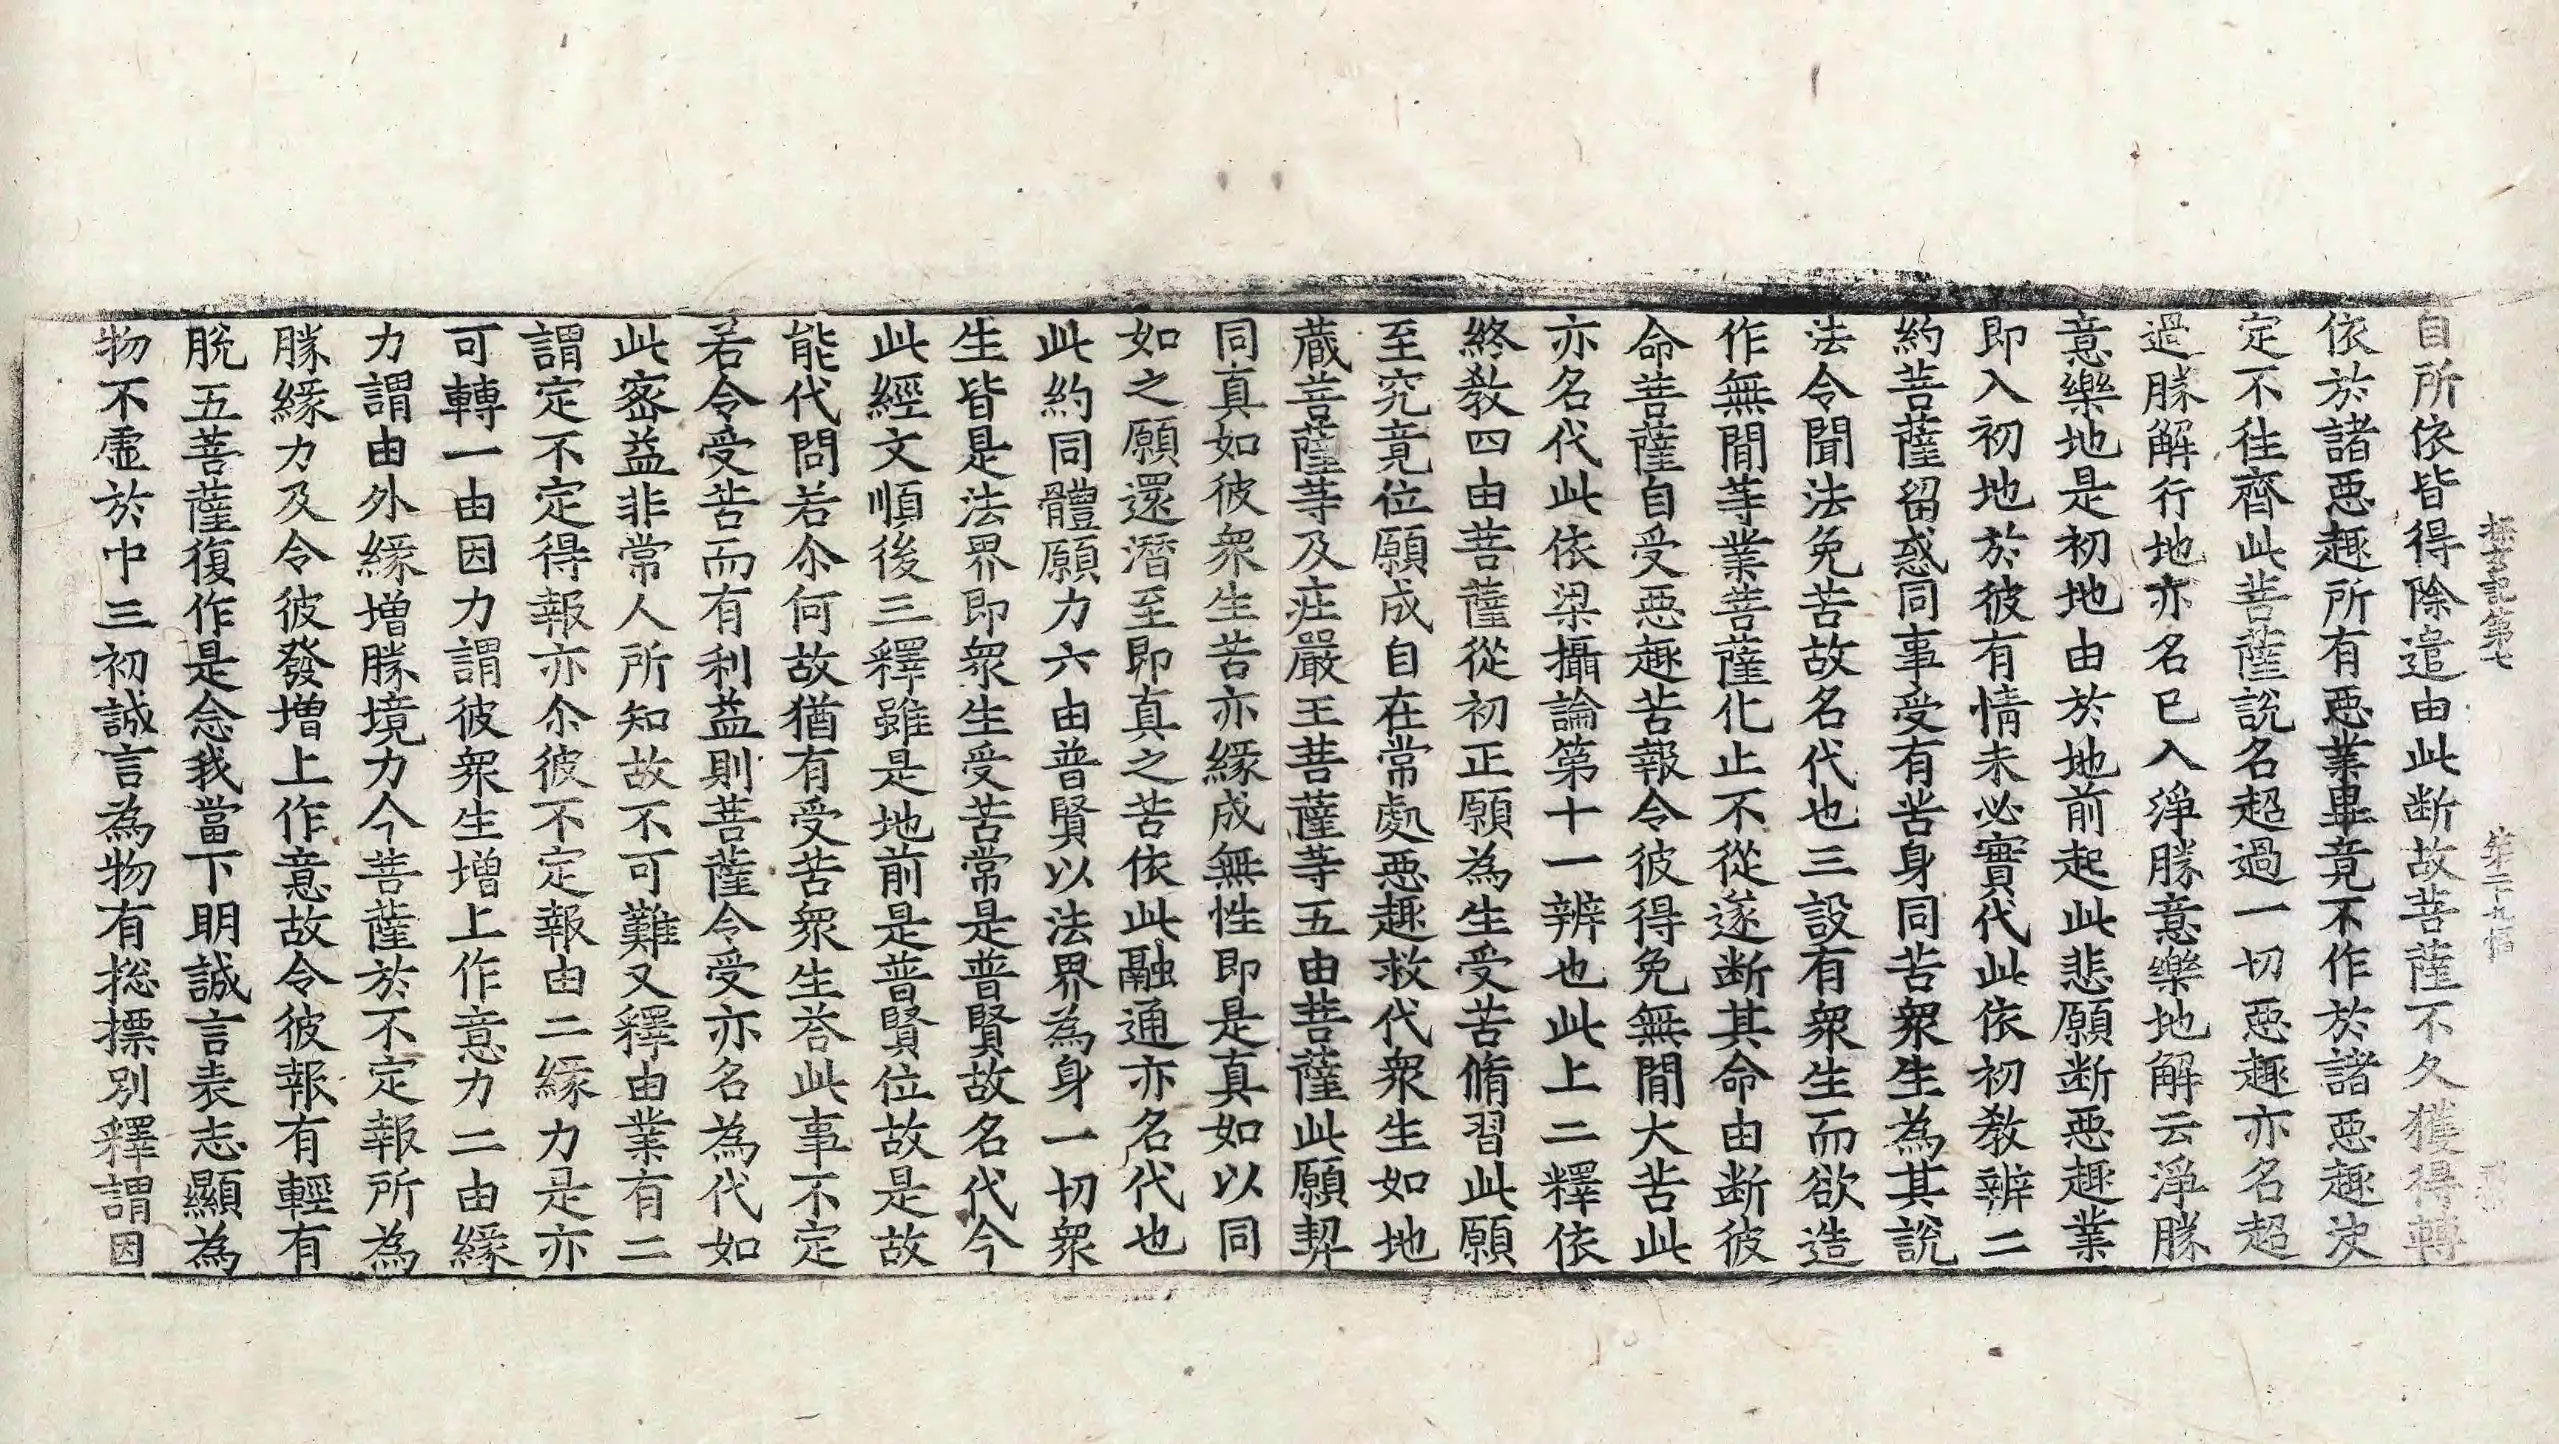 探玄記第七 第二十九幅
自所依皆得除遣由此断故菩薩不久獲得轉
依於諸惡趣所有惡業畢竟不作於諸惡趣决
定不徃齊此菩薩說名超過一切惡趣亦名超
過勝解行地亦名已入淨勝意樂地解云淨勝
意樂地是初地由於地前起此悲願断惡趣業
即入初地於彼有情未必實代此依初教辨二
約菩薩留惑同事受有苦身同苦衆生為其說
法令聞法免苦故名代也三設有衆生而欲造
作無間等業菩薩化止不從遂断其命由断彼
命菩薩自受惡趣苦報令彼得免無間大苦此
亦名代此依梁攝論第十一辨也此上二釋依
終教四由菩薩從初正願為生受苦脩習此願
至究竟位願成自在常處惡趣救代衆生如地
蔵菩薩等及庄嚴王菩薩等五由菩薩此願契
同真如彼衆生苦亦緣成無性即是真如以同
如之願還潛至即真之苦依此融通亦名代也
此約同體願力六由普賢以法界為身一切衆
生皆是法界即衆生受苦常是普賢故名代今
此經文順後三釋雖是地前是普賢位故是故
能代問若尒何故猶有受苦衆生荅此事不定
若令受苦而有利益則菩薩令受亦名為代如
此密益非常人所知故不可難又釋由業有二
謂定不定得報亦尒彼不定報由二緣力是亦
可轉一由因力謂彼衆生增上作意力二由緣
力謂由外緣增勝境力今菩薩於不定報所為
勝緣力及令彼發增上作意故令彼報有輕有
脫五菩薩復作是念我當下明誠言表志顯為
物不虛於中三初誠言為物有揔摽別釋謂因